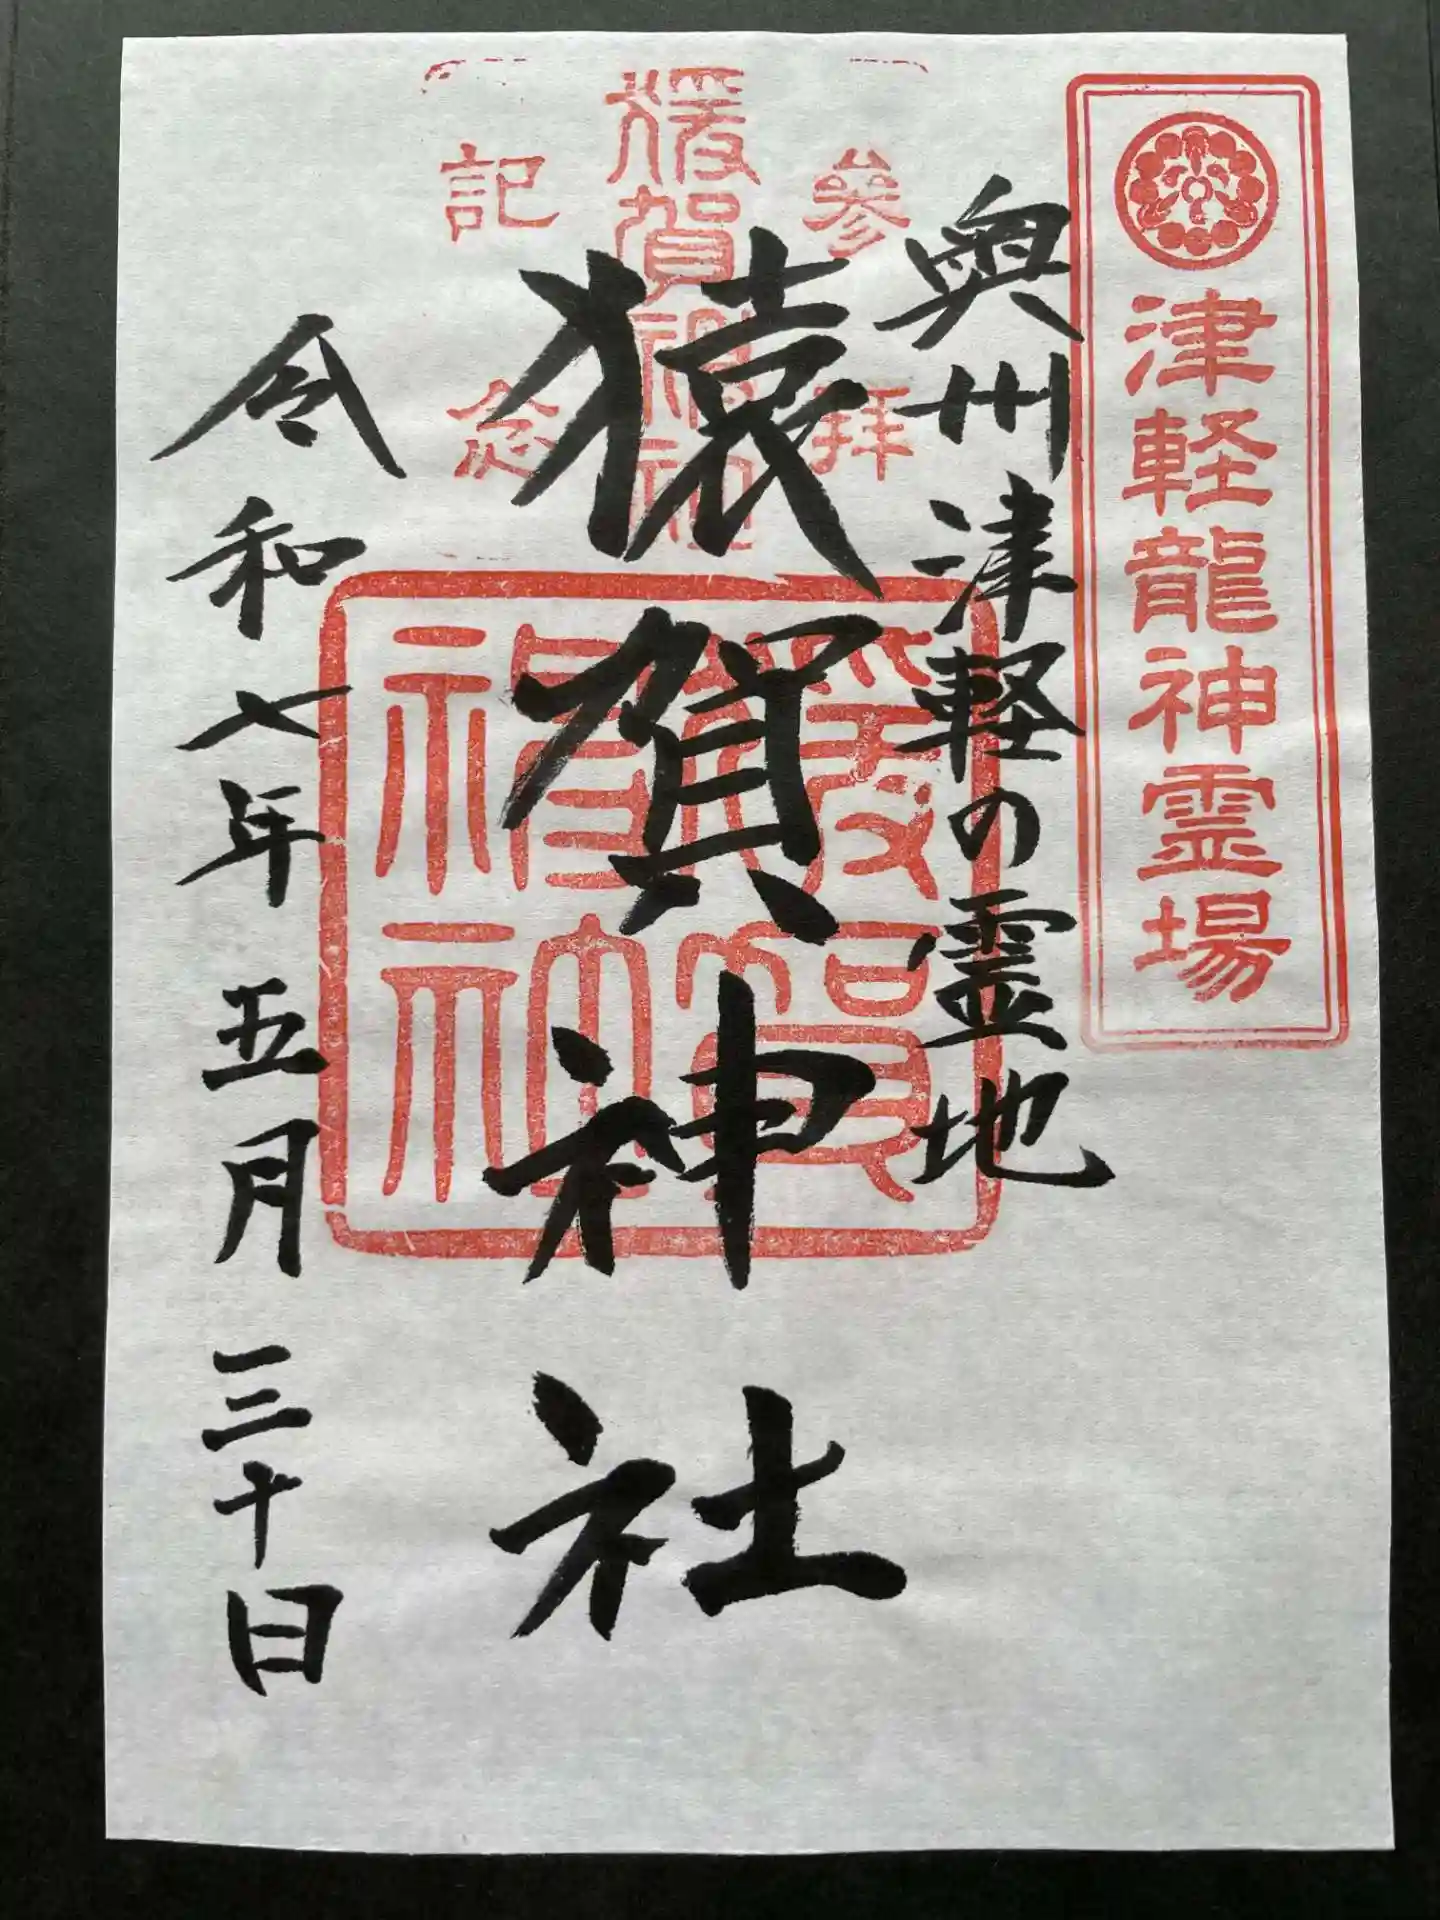 津軽龍神霊場
奥州津軽の霊地
参拝
猿賀神社
猿賀神社
記念
令和七年五月三十日